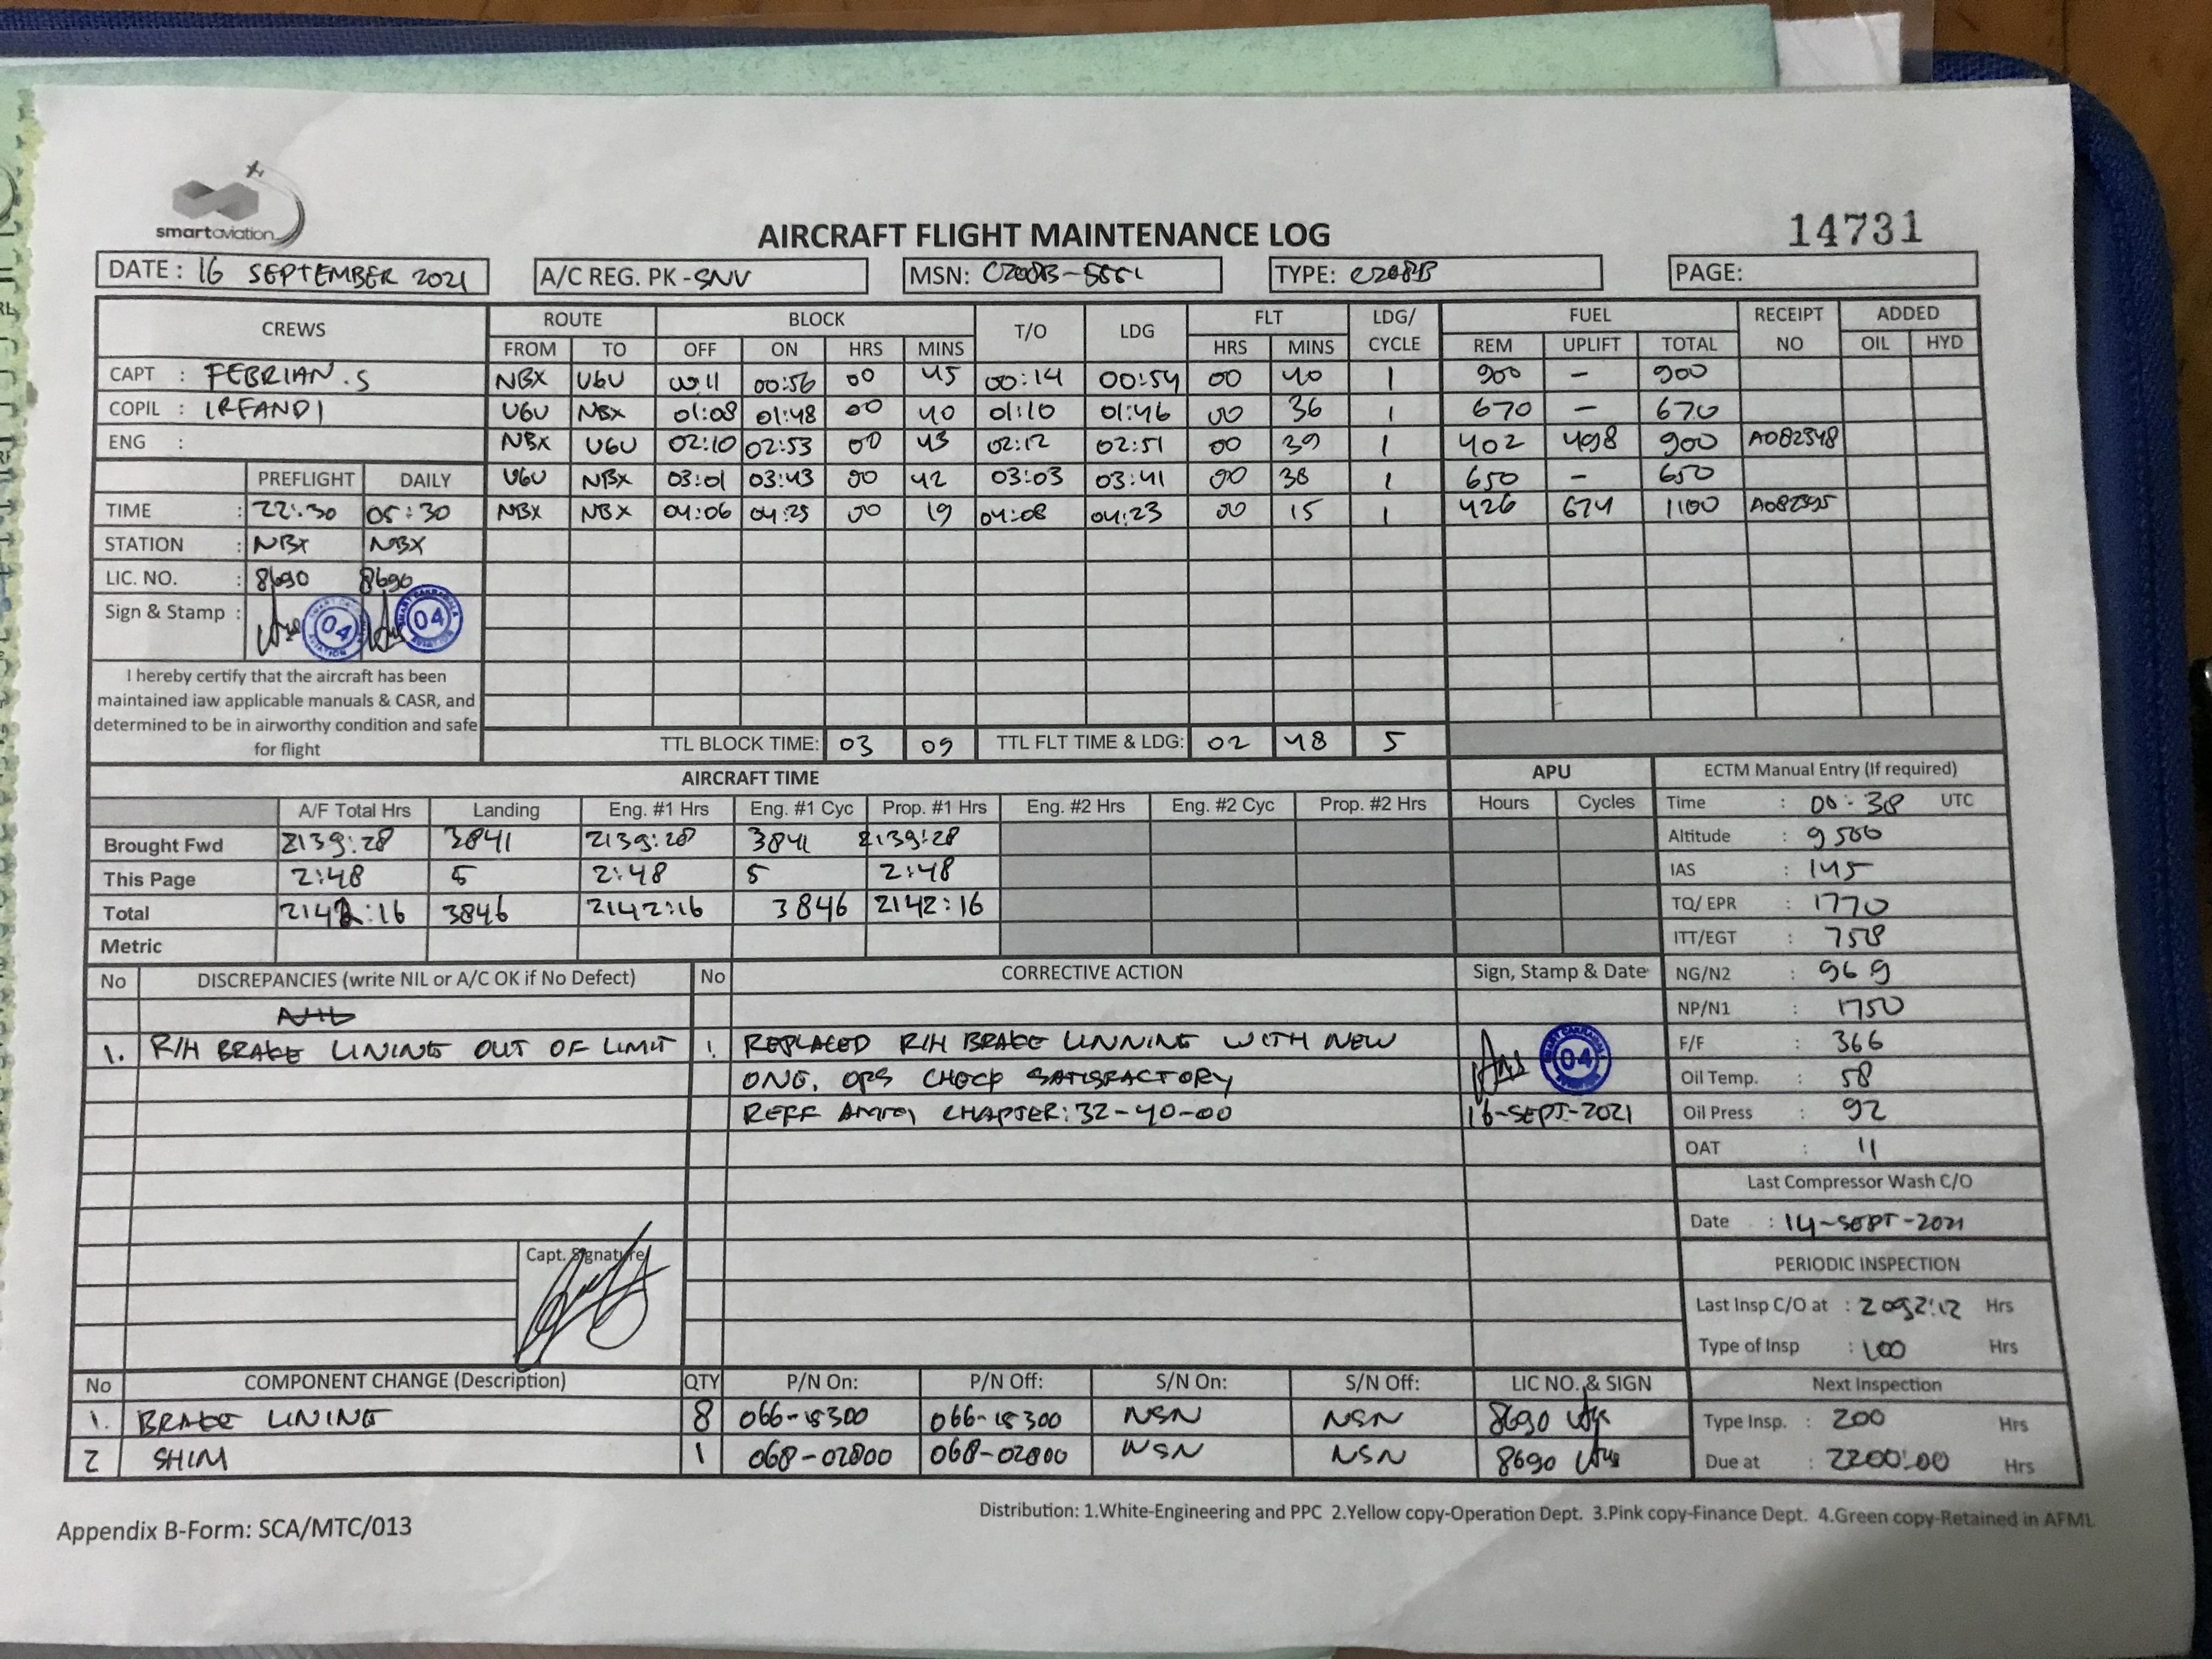 smartaviation
AIRCRAFT FLIGHT MAINTENANCE LOG
14731
DATE: 16 SEPTEMBER 2021 A/C REG. PK-SNV MSN: C208B- TYPE: C208B PAGE:
CREWS ROUTE BLOCK T/O LDG FLT LDG/ CYCLE FUEL RECEIPT NO ADDED
FROM TO OFF ON HRS MINS HRS MINS REM UPLIFT TOTAL OIL HYD
CAPT : FEBRIAN.S NBX UGU 00:11 00:56 00 45 00:14 00:54 00 40 1 900 – 900
COPIL : IRFANDI UGU NBX 01:08 01:48 00 40 01:10 01:46 00 36 1 670 – 670
ENG : NBX UGU 02:10 02:53 00 43 02:12 02:51 00 39 1 402 498 900
PREFLIGHT DAILY UGU NBX 03:01 03:43 00 42 03:03 03:41 00 38 1 650 – 650
TIME : 22:30 05:30 NBX NBX 04:06 04:25 00 19 04:08 04:23 00 15 1 426 674 1100
STATION : NBX NBX
LIC. NO. : 8690 8690
Sign & Stamp : 04 04
I hereby certify that the aircraft has been
maintained iaw applicable manuals & CASR, and
determined to be in airworthy condition and safe
for flight
TTL BLOCK TIME: 03 09 TTL FLT TIME & LDG: 02 48 5
AIRCRAFT TIME APU ECTM Manual Entry (If required)
A/F Total Hrs Landing Eng. #1 Hrs Eng. #1 Cyc Prop. #1 Hrs Eng. #2 Hrs Eng. #2 Cyc Prop. #2 Hrs Hours Cycles Time : 00:38 UTC
Brought Fwd 2139:28 3841 2139:28 3841 2139:28 Altitude : 9500
This Page 2:48 5 2:48 5 2:48 IAS : 145
Total 2142:16 3846 2142:16 3846 2142:16 TQ/ EPR : 1770
Metric ITT/EGT : 758
No DISCREPANCIES (write NIL or A/C OK if No Defect) No CORRECTIVE ACTION Sign, Stamp & Date NG/N2 : 96 9
NIL NP/N1 : 1750
1. R/H BRAKE LINING OUT OF LIMIT 1. REPLACED R/H BRAKE LINNING WITH NEW 04 F/F : 366
ONE, OPS CHECK SATISFACTORY Oil Temp. : 58
REFF AMM, CHAPTER: 32-40-00 16-SEPT-2021 Oil Press : 92
OAT : 11
Last Compressor Wash C/O
Date : 14-SEPT-2021
Capt. Signature
PERIODIC INSPECTION
Last Insp C/O at : 2092:12 Hrs
Type of Insp : 100 Hrs
No COMPONENT CHANGE (Description) QTY P/N On: P/N Off: S/N On: S/N Off: LIC NO. & SIGN Next Inspection
1. BRAKE LINING 8 066-15300 066-15300 NSN NSN 8690 Type Insp. : 200 Hrs
2 SHIM 1 068-02800 068-02800 NSN NSN 8690 Due at : 2200:00 Hrs
Distribution: 1.White-Engineering and PPC 2.Yellow copy-Operation Dept. 3.Pink copy-Finance Dept. 4.Green copy-Retained in AFML
Appendix B-Form: SCA/MTC/013